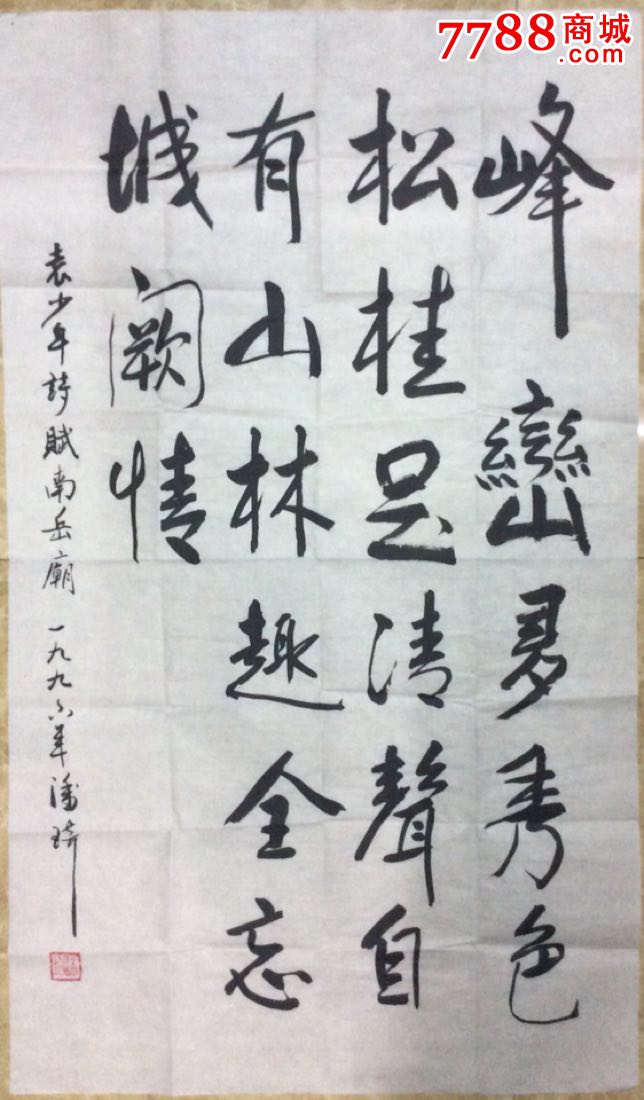 7788商城
.com
峰巒多秀色
松桂足清聲自
有山林趣全忘
城闕情
袁少年詩賦南岳廟 一九九六年潘琦